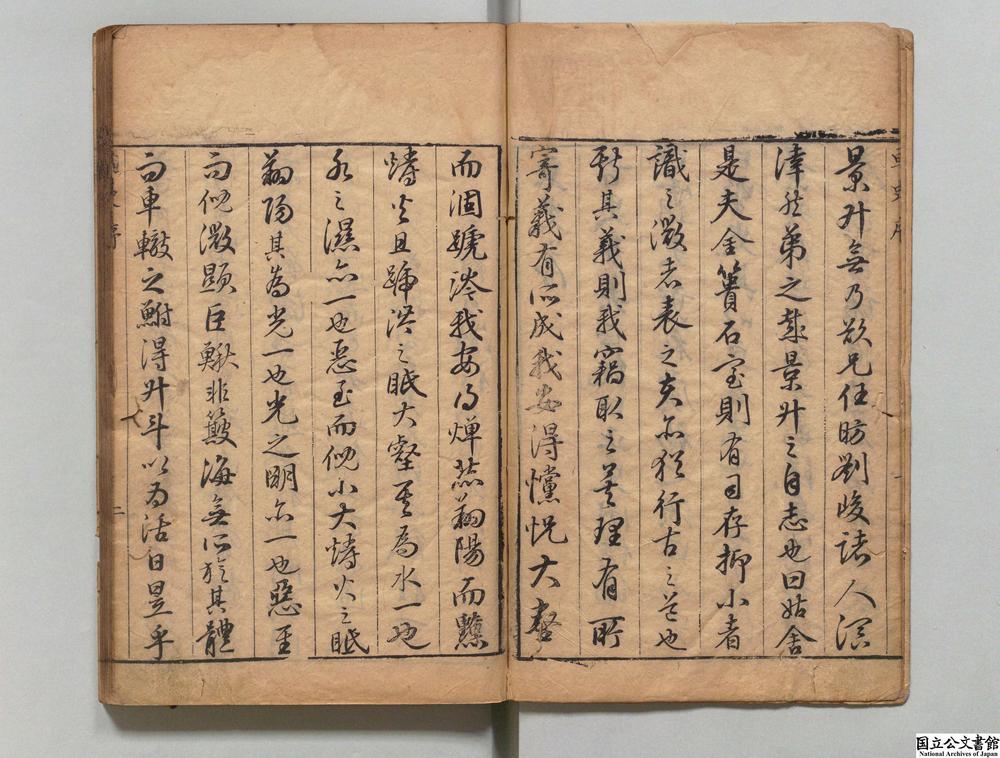 景升無乃欲兄任昉劉峻諸人溟
涬然弟之哉景升之自志也曰姑舍
是夫金簣石室則有司存抑小者
識之微者表之夫亦猶行古之道也
其義則我竊取之矣理有所
寄義有所成我安得儻怳大壑
而涸蹏涔我安得燀爇陽而
燐火且蹏涔之眂大壑其為水一也
水之濕亦一也惡至而倪小大燐火之眂
陽其為光一也光之明亦一也惡至
而倪微顯巨鰍非簸海無所旋其體
而車轍之鮒得升斗以為活日昱乎
二
国立公文書館
National Archives of Japan